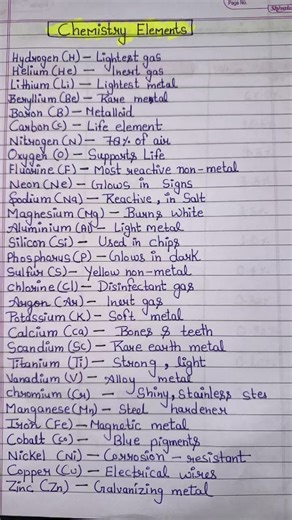 Page No.
Chemistry Elements
Hydrogen (H) — Lightest gas
Helium (He) — Inert gas
Lithium (Li) — Lightest metal
Beryllium (Be) — Rare metal
Boron (B) — Metalloid
Carbon (C) — Life element
Nitrogen (N) — 78% of air
Oxygen (O) — Supports Life
Fluorine (F) — Most reactive non-metal
Neon (Ne) — Glows in Signs
Sodium (Na) — Reactive, in Salt
Magnesium (Mg) — Burns white
Aluminium (Al) — Light metal
Silicon (Si) — Used in chips
Phosphorus (P) — Glows in dark
Sulfur (S) — Yellow non-metal
chlorine (Cl) — Disinfectant gas
Argon (Ar) — Inert gas
Potassium (K) — Soft metal
Calcium (Ca) — Bones & teeth
Scandium (Sc) — Rare earth metal
Titanium (Ti) — Strong, light
Vanadium (V) — Alloy metal
chromium (Cr) — Shiny, Stainless stee
Manganese (Mn) — Steel hardener
Iron (Fe) — Magnetic metal
Cobalt (Co) — Blue pigments
Nickel (Ni) — Corrosion-resistant
Copper (Cu) — Electrical wires
Zinc (Zn) — Galvanizing metal